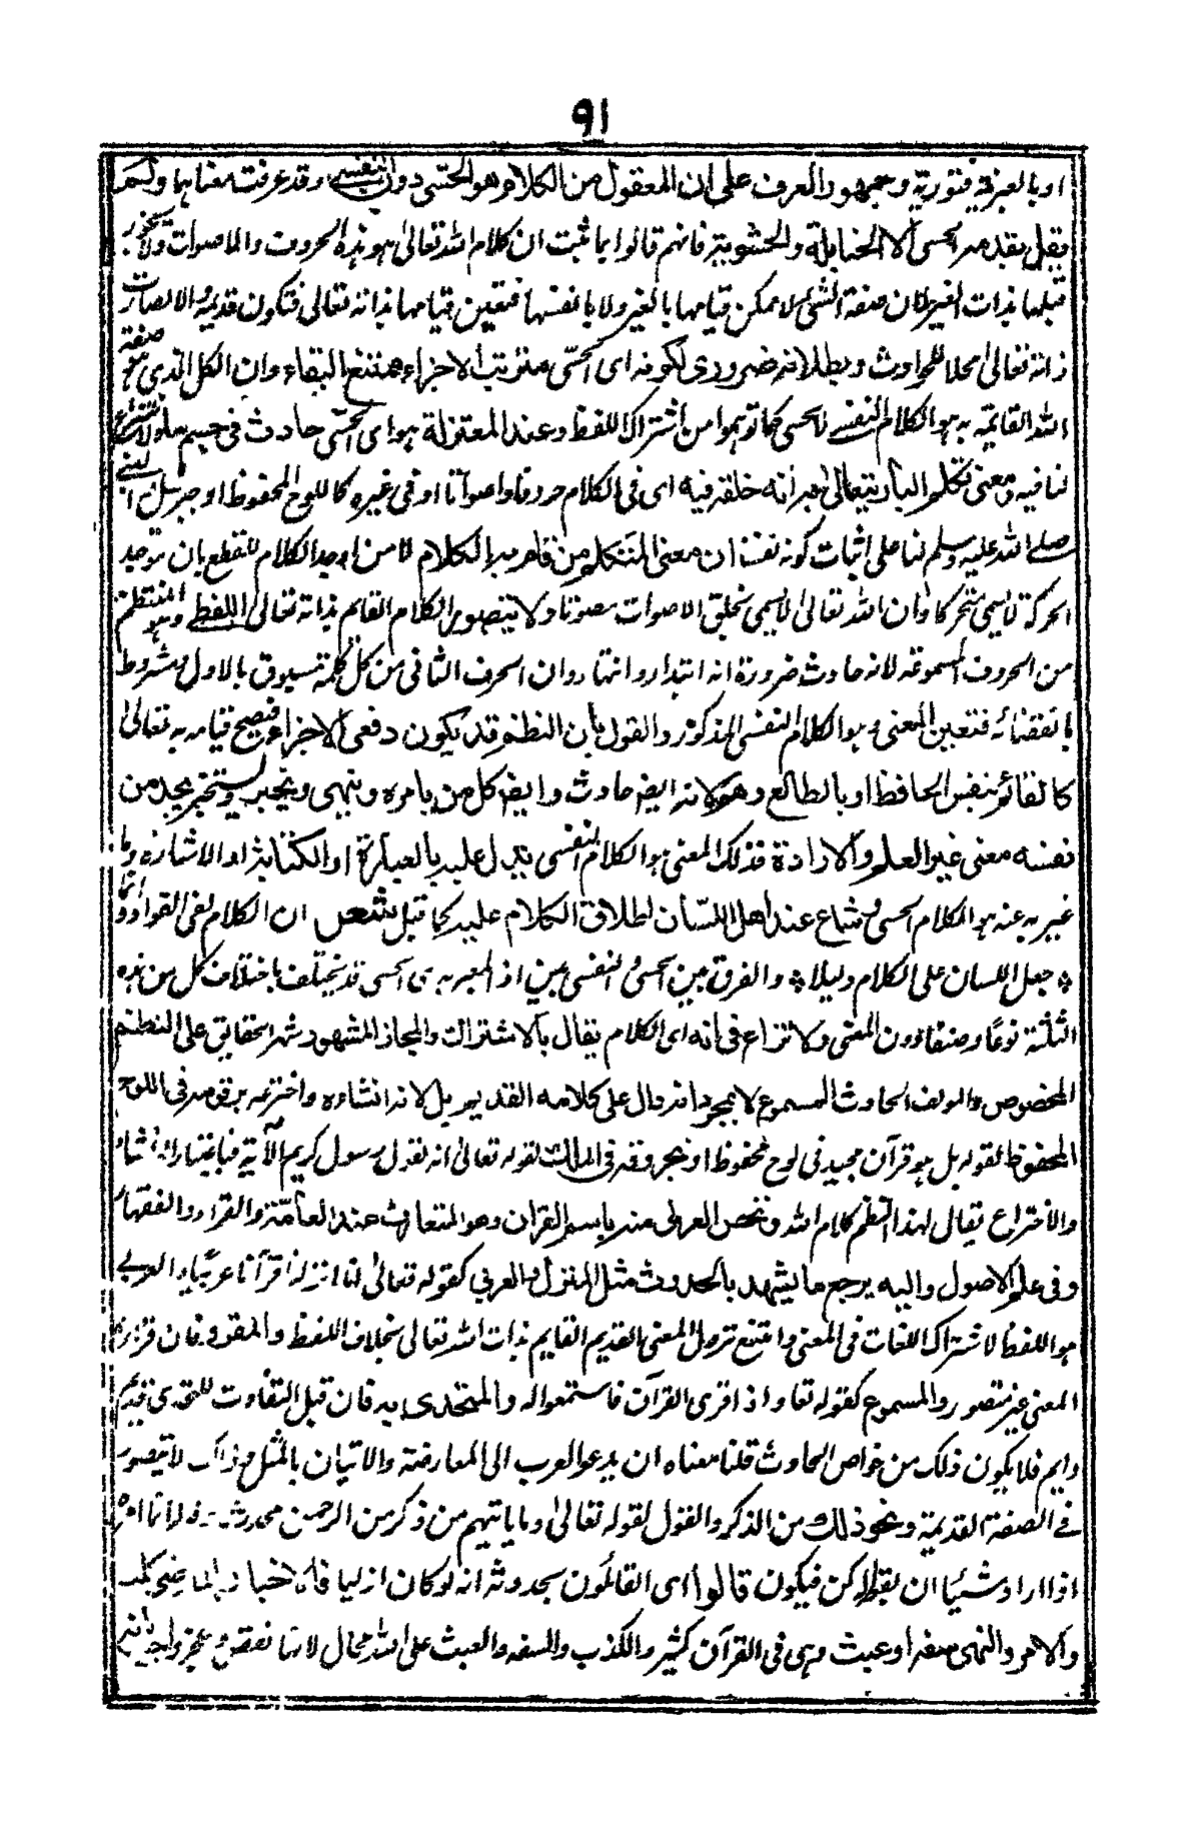 ٩١
او بالعبرية فتورية وجمهور العرف على ان المعقول من الكلام هو الحسى دون النفسى وقد عرفت معناهما ولم
يقل بقدم الحسى الا الحنابلة والحشوية فانهم قالوا بما ثبت ان كلام الله تعالى هو هذه الحروف والاصوات ولا يجوز
قيامها بذات الغير لان صفة الشئ لا يمكن قيامها بالغير ولا بانفسها فتعين قيامها بذاته تعالى فتكون قديمة والالصار
ذاته تعالى محلا للحوادث وبطلانه ضرورى لكونه اى الحسى مترتب الاجزاء ممتنع البقاء وان الكل الذى هو صفة
الله القائمة به هو الكلام النفسى لا الحسى كما توهموا من اشتراك اللفظ وعند المعتزلة هو اى الحسى حادث فى جسم
لنا فيه ومعنى تكلم البارى تعالى به انه خلقه فيه اى فى الكلام حروفا واصواتا او فى غيره كاللوح المحفوظ او جبرئيل او النبى
صلى الله عليه وسلم لنا على اثبات كونه نفسا ان معنى المتكلم من قام به الكلام لا من اوجد الكلام للقطع بان موجد
الحركة لا يسمى متحركا وان الله تعالى لا يسمى بخلق الاصوات مصوتا ولا يتصور الكلام القايم بذاته تعالى اللفظى وهو المنتظم
من الحروف المسموعة لانه حادث ضرورة انه ابتداء وانتهاء وان الحرف الثانى من كل كلمة مسبوق بالاول مشروط
بانقضائه فتعين المعنى وهو الكلام النفسى المذكور والقول بان النظم قد يكون دفعى الاجزاء فيصح قيامه به تعالى
كالقائم بنفس الحافظ او بالطالع وهو لانه ايضا حادث وايضا كل من يامر وينهى ويخبر ويستخبر يجد من
نفسه معنى غير العلم والارادة فذلك المعنى هو الكلام النفسى يدل عليه بالعبارة او الكتابة او الاشارة وما
عبر به عنه هو الكلام الحسى وشاع عند اهل اللسان اطلاق الكلام عليه كما قيل شعر ان الكلام لفى الفواد وانما
* جعل اللسان على الكلام دليلا * والفرق بين الحسى والنفسى بين اذ المعبر به اى الحسى قد يختلف باختلاف كل من هذه
الثلثة نوعا وصنفا دون المعنى ولا نزاع فى انه اى الكلام يقال بالاشتراك والمجاز المشهور شهرة الحقايق على النظم
المخصوص والمولف الحادث المسموع لا بمجرد انه دال على كلامه القديم بل لانه انشاءه واخترعه برقومه فى اللوح
المحفوظ لقوله بل هو قرآن مجيد فى لوح محفوظ او بحروفه فى الملك لقوله تعالى انه لقول رسول كريم الآية فباعتبار الانشاء
والاختراع يقال لهذا النظم كلام الله وتخص العربى منه باسم القران وهو المتعارف عند العامة والقراء والفقهاء
وفى علم الاصول واليه يرجع ما يشهد بالحدوث مثل المنزل والعربى كقوله تعالى انا انزلناه قرآنا عربيا والعربى
هو اللفظ لاشتراك اللغات فى المعنى وامتنع نزول المعنى القديم القايم بذات الله تعالى بخلاف اللفظ والمقروء فان قراءة
المعنى غير متصور والمسموع كقوله تعا واذا قرئ القرآن فاستمعوا له والمتحدى به فان قيل التفاوت للتحدى قديم
دايم فلا يكون ذلك من خواص الحادث قلنا معناه ان يدعو العرب الى المعارضة والاتيان بالمثل وذاك لا يتصور
فى الصفة القديمة ونحو ذلك من الذكر والقول لقوله تعالى وما ياتيهم من ذكر من الرحمن محدث انما امره
اذا اراد شيئا ان يقول له كن فيكون قالوا اى القائلون بحدوثه انه لو كان ازليا فالاخبار بالماضى كذب
والامر والنهى سفه او عبث وهى فى القرآن كثير والكذب والسفه والعبث على الله محال لانها نقص وعجز واجيب